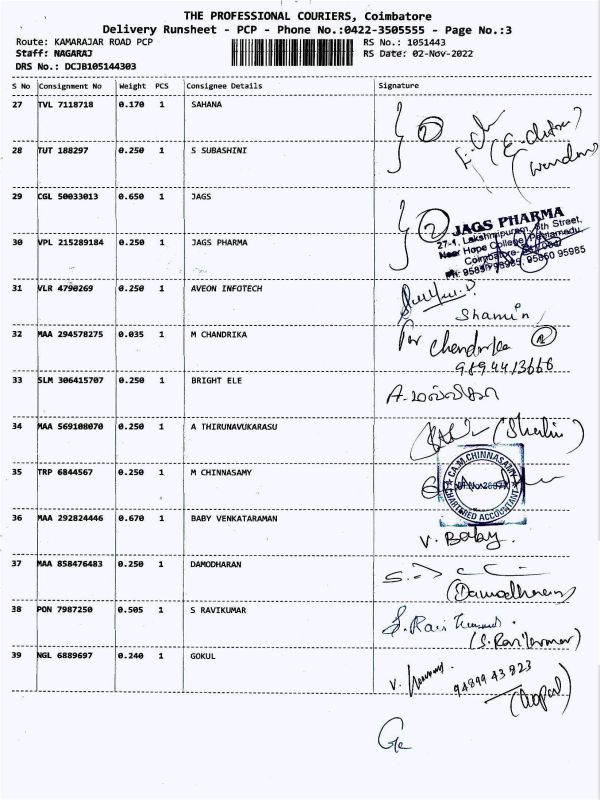 THE PROFESSIONAL COURIERS, Coimbatore
Delivery Runsheet - PCP - Phone No.:0422-3505555 - Page No.:3
Route: KAMARAJAR ROAD PCP RS No.: 1051443
Staff: NAGARAJ RS Date: 02-Nov-2022
DRS No.: DCJB105144303
S No Consignment No Weight PCS Consignee Details Signature
27 TVL 7118718 0.170 1 SAHANA
2
28 TUT 188297 0.250 1 S SUBASHINI
29 CGL 50033013 0.650 1 JAGS
2 JAGS PHARMA
27-1, Lakshmipuram, 8th Street,
Near Hope College, Peelamedu,
Coimbatore
30 VPL 215289184 0.250 1 JAGS PHARMA
31 VLR 4790269 0.250 1 AVEON INFOTECH
32 MAA 294578275 0.035 1 M CHANDRIKA
For Chandrika
9894413666
33 SLM 306415707 0.250 1 BRIGHT ELE
34 MAA 569108070 0.250 1 A THIRUNAVUKARASU
35 TRP 6844567 0.250 1 M CHINNASAMY
CA.M.CHINNASAMY
CHARTERED ACCOUNTANT
36 MAA 292824446 0.670 1 BABY VENKATARAMAN
V. Baby
37 MAA 858476483 0.250 1 DAMODHARAN
(Damodharan)
38 PON 7987250 0.505 1 S RAVIKUMAR
S. Ravi Kumar
(S. Ravikumar)
39 NGL 6889697 0.240 1 GOKUL
9489943823